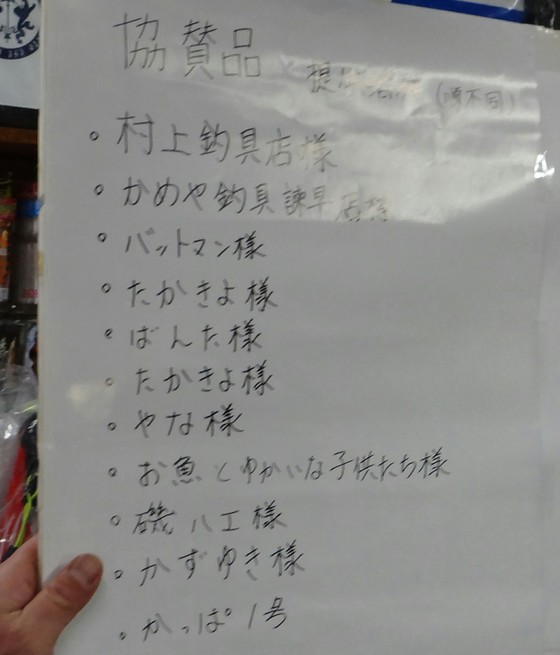 協賛品
(順不同)
。村上釣具店様
。かめや釣具諫早店様
。バットマン様
。たかきよ様
。ばんた様
。たかきよ様
。やな様
。お魚とゆかいな子供たち様
。磯ハエ様
。かずゆき様
。かっぱ1号